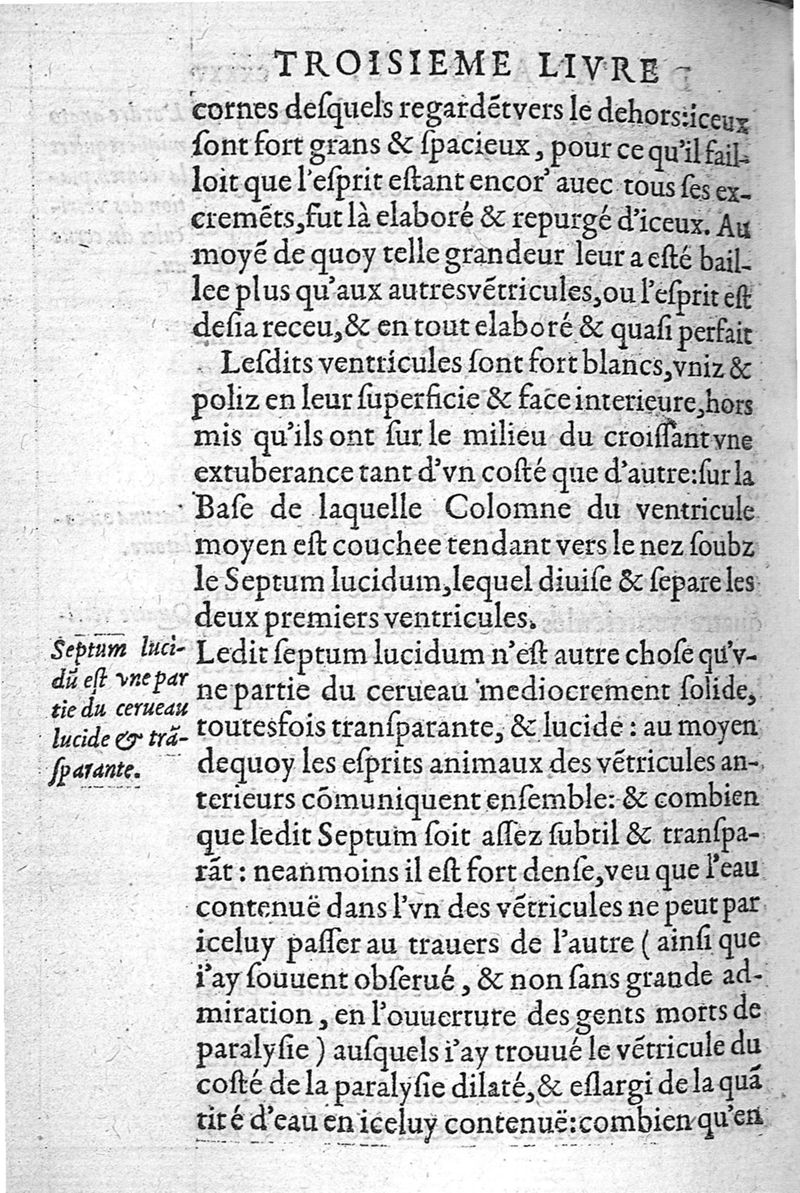 TROISIEME LIVRE
cornes deſquels regardẽtvers le dehors:iceux
ſont fort grans & ſpacieux, pour ce qu'il fail-
loit que l'eſprit eſtant encor' auec tous ſes ex-
cremẽts,fut là elaboré & repurgé d'iceux. Au
moyẽ de quoy telle grandeur leur a eſté bail-
lee plus qu'aux autresvẽtricules,ou l'eſprit eſt
deſia receu,& en tout elaboré & quaſi perfait
Leſdits ventricules ſont fort blancs,vniz &
poliz en leur ſuperficie & face interieure,hors
mis qu'ils ont ſur le milieu du croiſſant vne
extuberance tant d'vn coſté que d'autre:ſur la
Baſe de laquelle Colomne du ventricule
moyen eſt couchee tendant vers le nez ſoubz
le Septum lucidum,lequel diuiſe & ſepare les
deux premiers ventricules.
Septum luci-
dũ eſt vne par
tie du cerueau
lucide & trã-
ſparante.
Ledit ſeptum lucidum n'eſt autre choſe qu'v-
ne partie du cerueau mediocrement ſolide,
toutesfois tranſparante, & lucide : au moyen
dequoy les eſprits animaux des vẽtricules an-
terieurs cõmuniquent enſemble: & combien
que ledit Septum ſoit aſſez ſubtil & tranſpa-
rãt : neanmoins il eſt fort denſe,veu que l'eau
contenuë dans l'vn des vẽtricules ne peut par
iceluy paſſer au trauers de l'autre ( ainſi que
i'ay ſouuent obſerué, & non ſans grande ad-
miration, en l'ouuerture des gents morts de
paralyſie ) auſquels i'ay trouué le vẽtricule du
coſté de la paralyſie dilaté,& eſlargi de la quã
tité d'eau en iceluy contenuë:combien qu'en